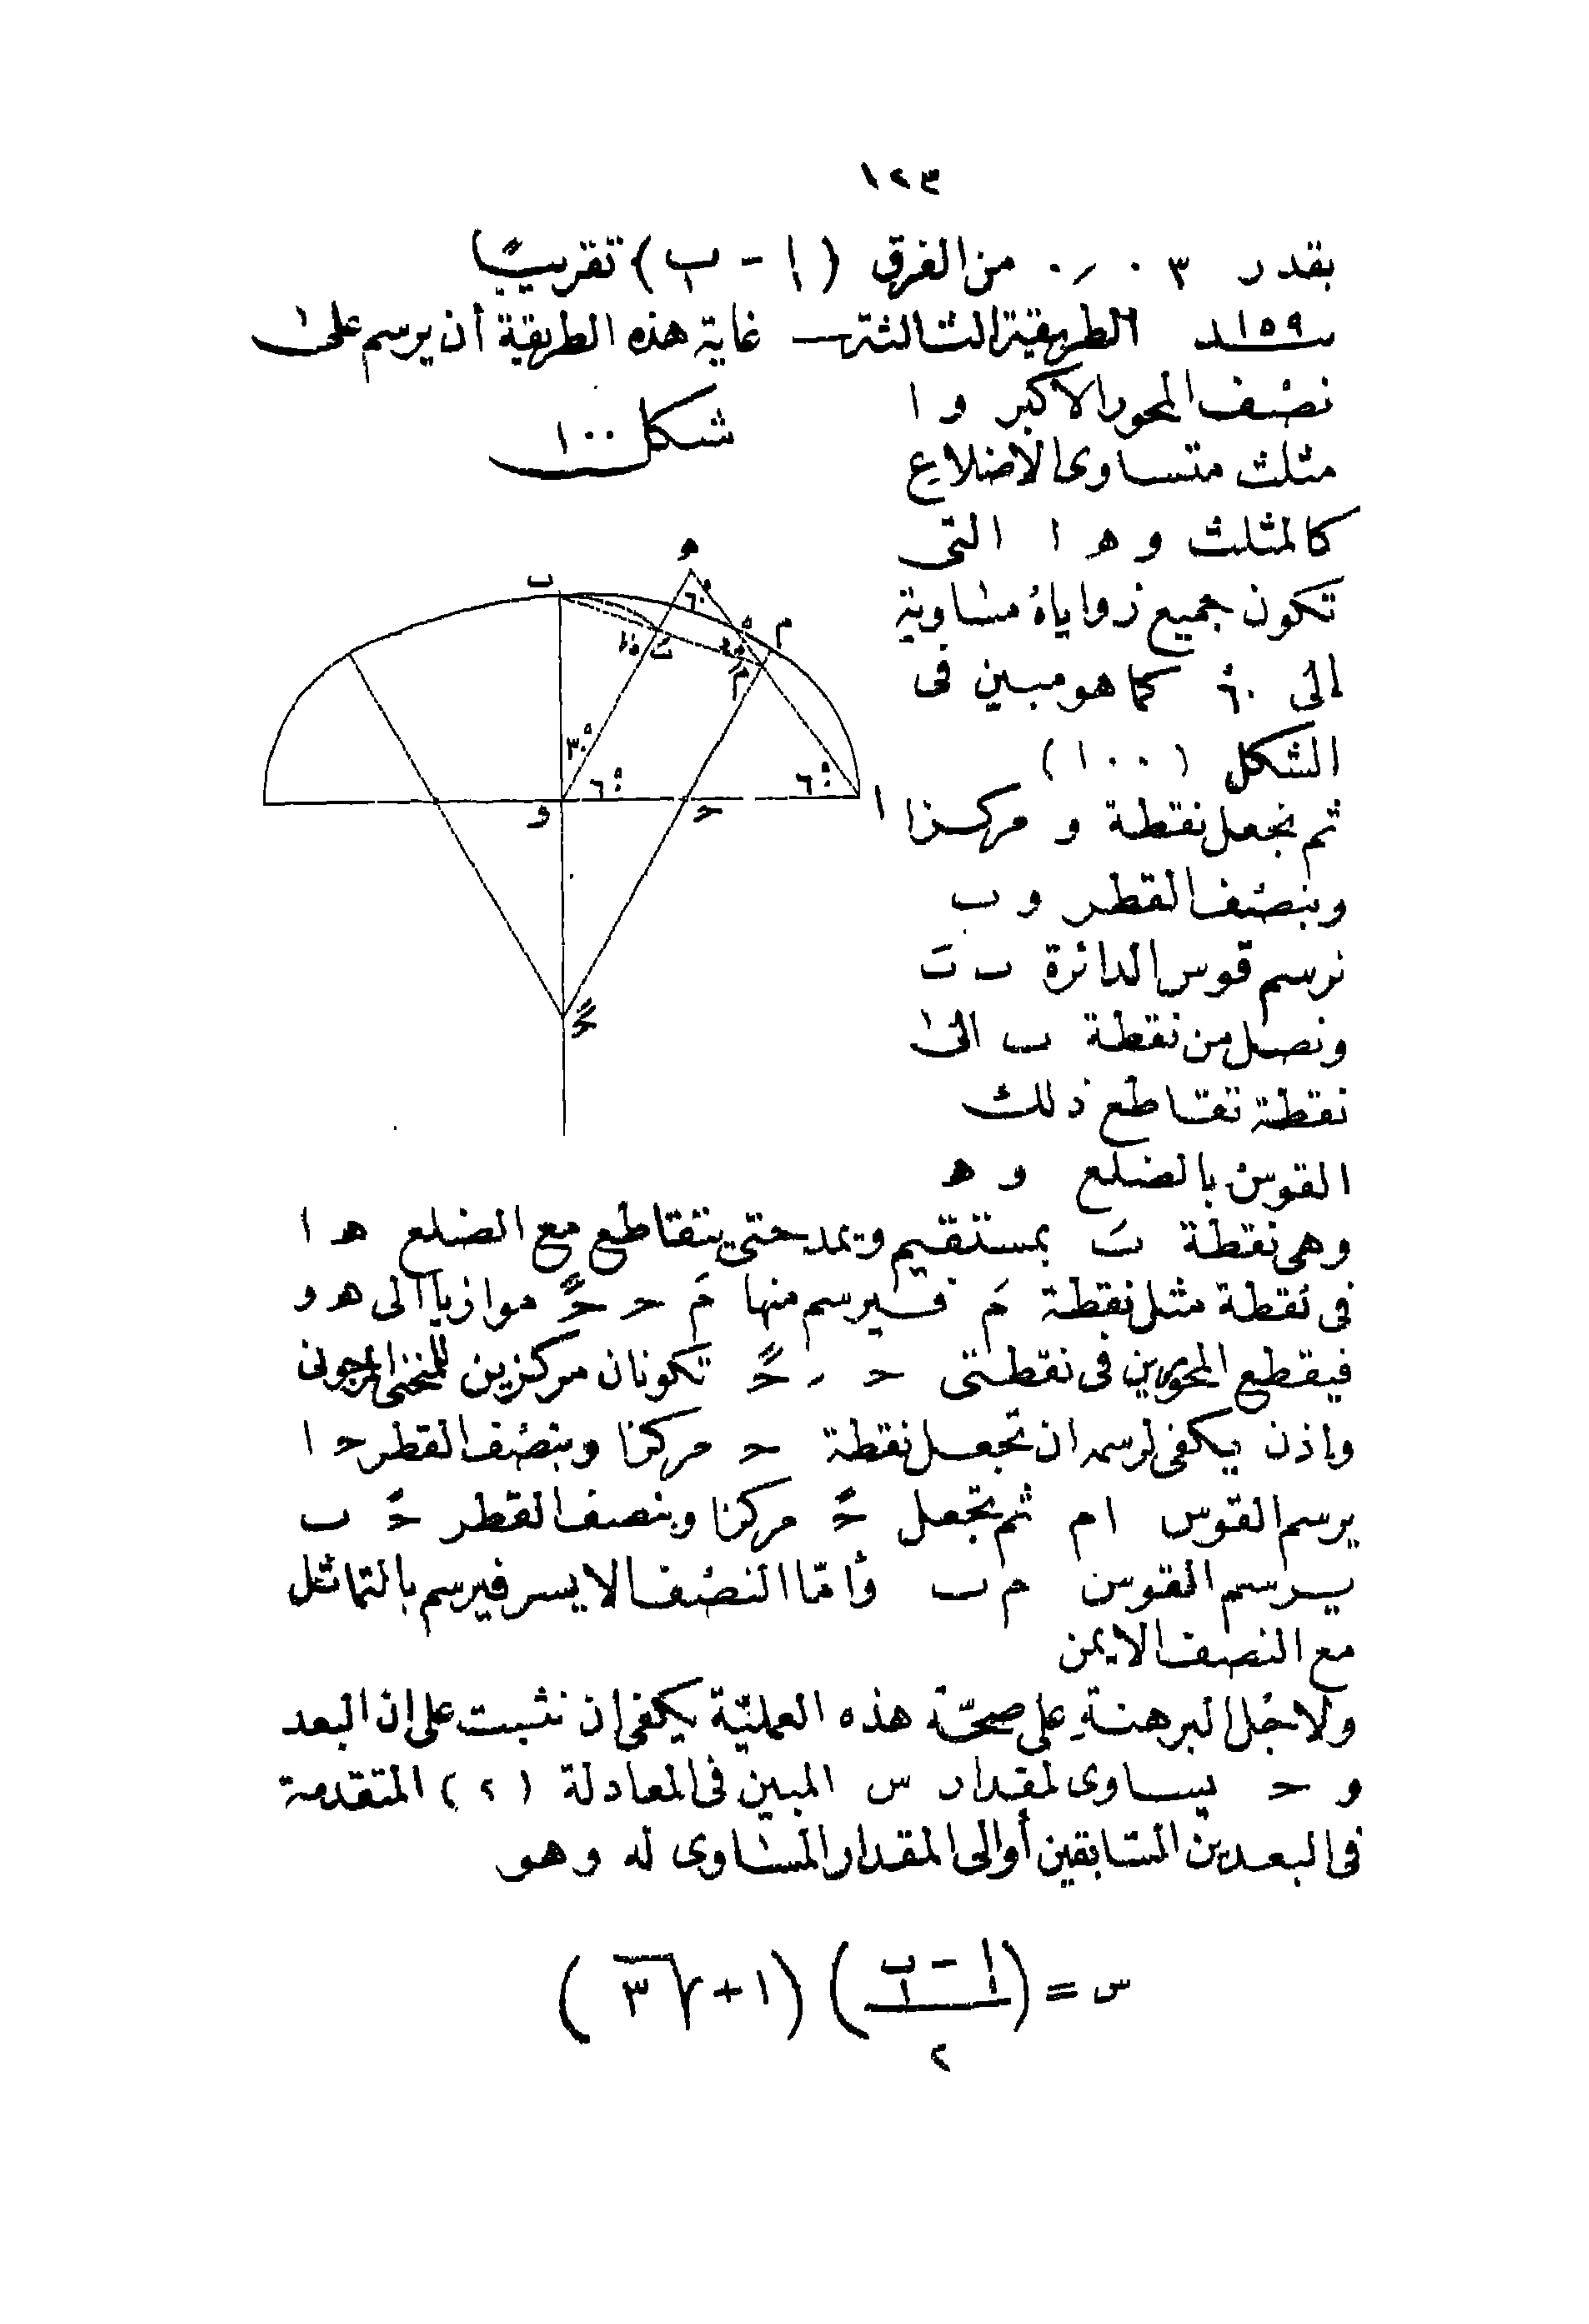 ١٢٣
بقدر ٠٫٠٣ من الفرق (ا - ب) تقريبًا
١٥٩ الطريقة الثالثة — غاية هذه الطريقة أن يرسم على
نصف المحور الاكبر و ا
شكل ١٠٠
مثلث متساوى الاضلاع
كالمثلث و ه ا التى
تكون جميع زواياه مساوية
إلى ٦٠° كما هو مبين فى
الشكل (١٠٠)
ثم نجعل نقطة و مركزا
وبنصف القطر و ب
نرسم قوس الدائرة ب بَ
ونصل من نقطة ب الى
نقطة تقاطع ذلك
القوس بالضلع و ه
ه
ب
٦٠°
م
بَ
مَ
٣٠°
٦٠°
٦٠°
و
حـ
ا
حـً
وهى نقطة بَ بمستقيم ويمد حتى يتقاطع مع الضلع ه ا
فى نقطة مثل نقطة مَ فيرسم منها مَ حـ حـً موازيا الى ه و
فيقطع المحورين فى نقطتى حـ ، حـً تكونان مركزين للمنحنى المرجونى
واذن يكفى لرسمه ان تجعل نقطة حـ مركزا وبنصف القطر حـ ا
يرسم القوس ا م ثم تجعل حـً مركزا وبنصف القطر حـً ب
يرسم القوس م ب وأمّا النصف الايسر فيرسم بالتماثل
مع النصف الايمن
ولاجل البرهنة على صحّة هذه العمليّة يكفى ان نثبت على ان البعد
و حـ يساوى لمقدار س المبين فى المعادلة (٢) المتقدمة
فى البعدين السابقين أو الى المقدار المساوى له وهو
س = (ا - ب / ٢) (١ + √٣)